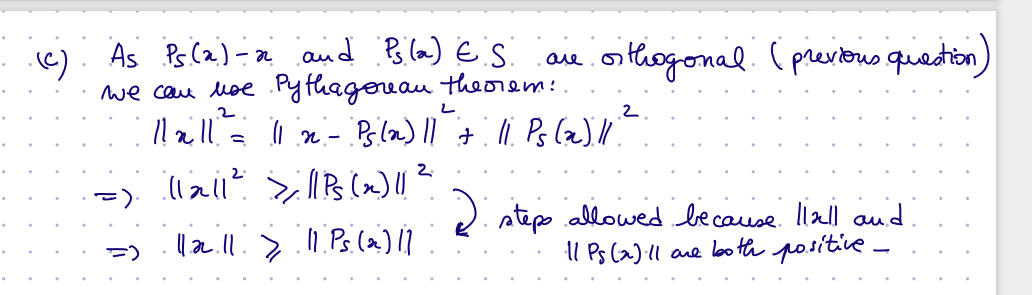 (c) As Ps(x)-x and Ps(x) ∈ S are orthogonal (previous question)
we can use Pythagorean theorem:
||x||² = || x - Ps(x) ||² + || Ps(x) ||²
=> ||x||² ≥ ||Ps(x)||²
=> ||x|| ≥ || Ps(x) || steps allowed because ||x|| and
|| Ps(x) || are both positive -